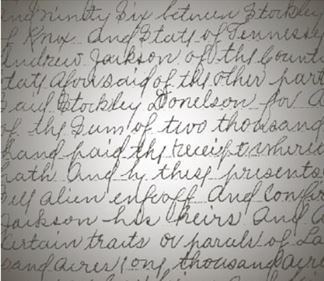 and ninety Six between Stockley
of Knox And State of Tennessee
Andrew Jackson of the County
State aforesaid of the other part
Said Stockley Donelson for A
of the Sum of two thousand
hand paid the receipt where
hath And by these presents
Sell alien enfeoff And Confir
Jackson his heirs And A
Certain traits or parcels of La
sand acres (one thousand acre